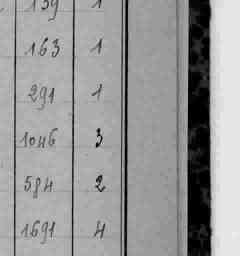 139 1
163 1
291 1
1046 3
584 2
1691 4